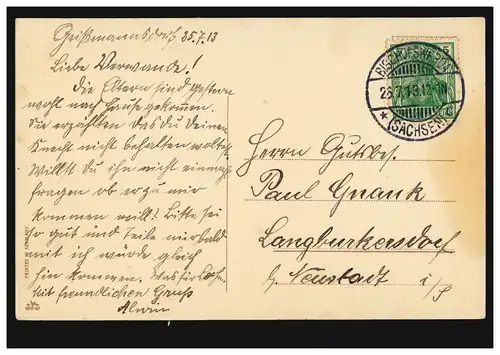 Geißmannsdorf 25.7.13
Liebe Verwande!
Die Eltern sind gestern
wohl nach Hause gekommen.
Sie erzählten das du deinen
Knecht nicht behalten wolltest
Willst du ihn nicht einmal
fragen ob er zu mir
kommen will. Bitte sei
so gut und Teile mir bald
mit ich würde gleich
hin kommen. Was für Lohn.
Mit freundlichen Gruß
Alwin
BISCHOFSWERDA
26.7.13.12-1N.
* (SACHSEN) c
Herrn Gutsbes.
Paul Gnauk
Langburkersdorf
b/ Neustadt i/S
PRINTED IN GERMANY